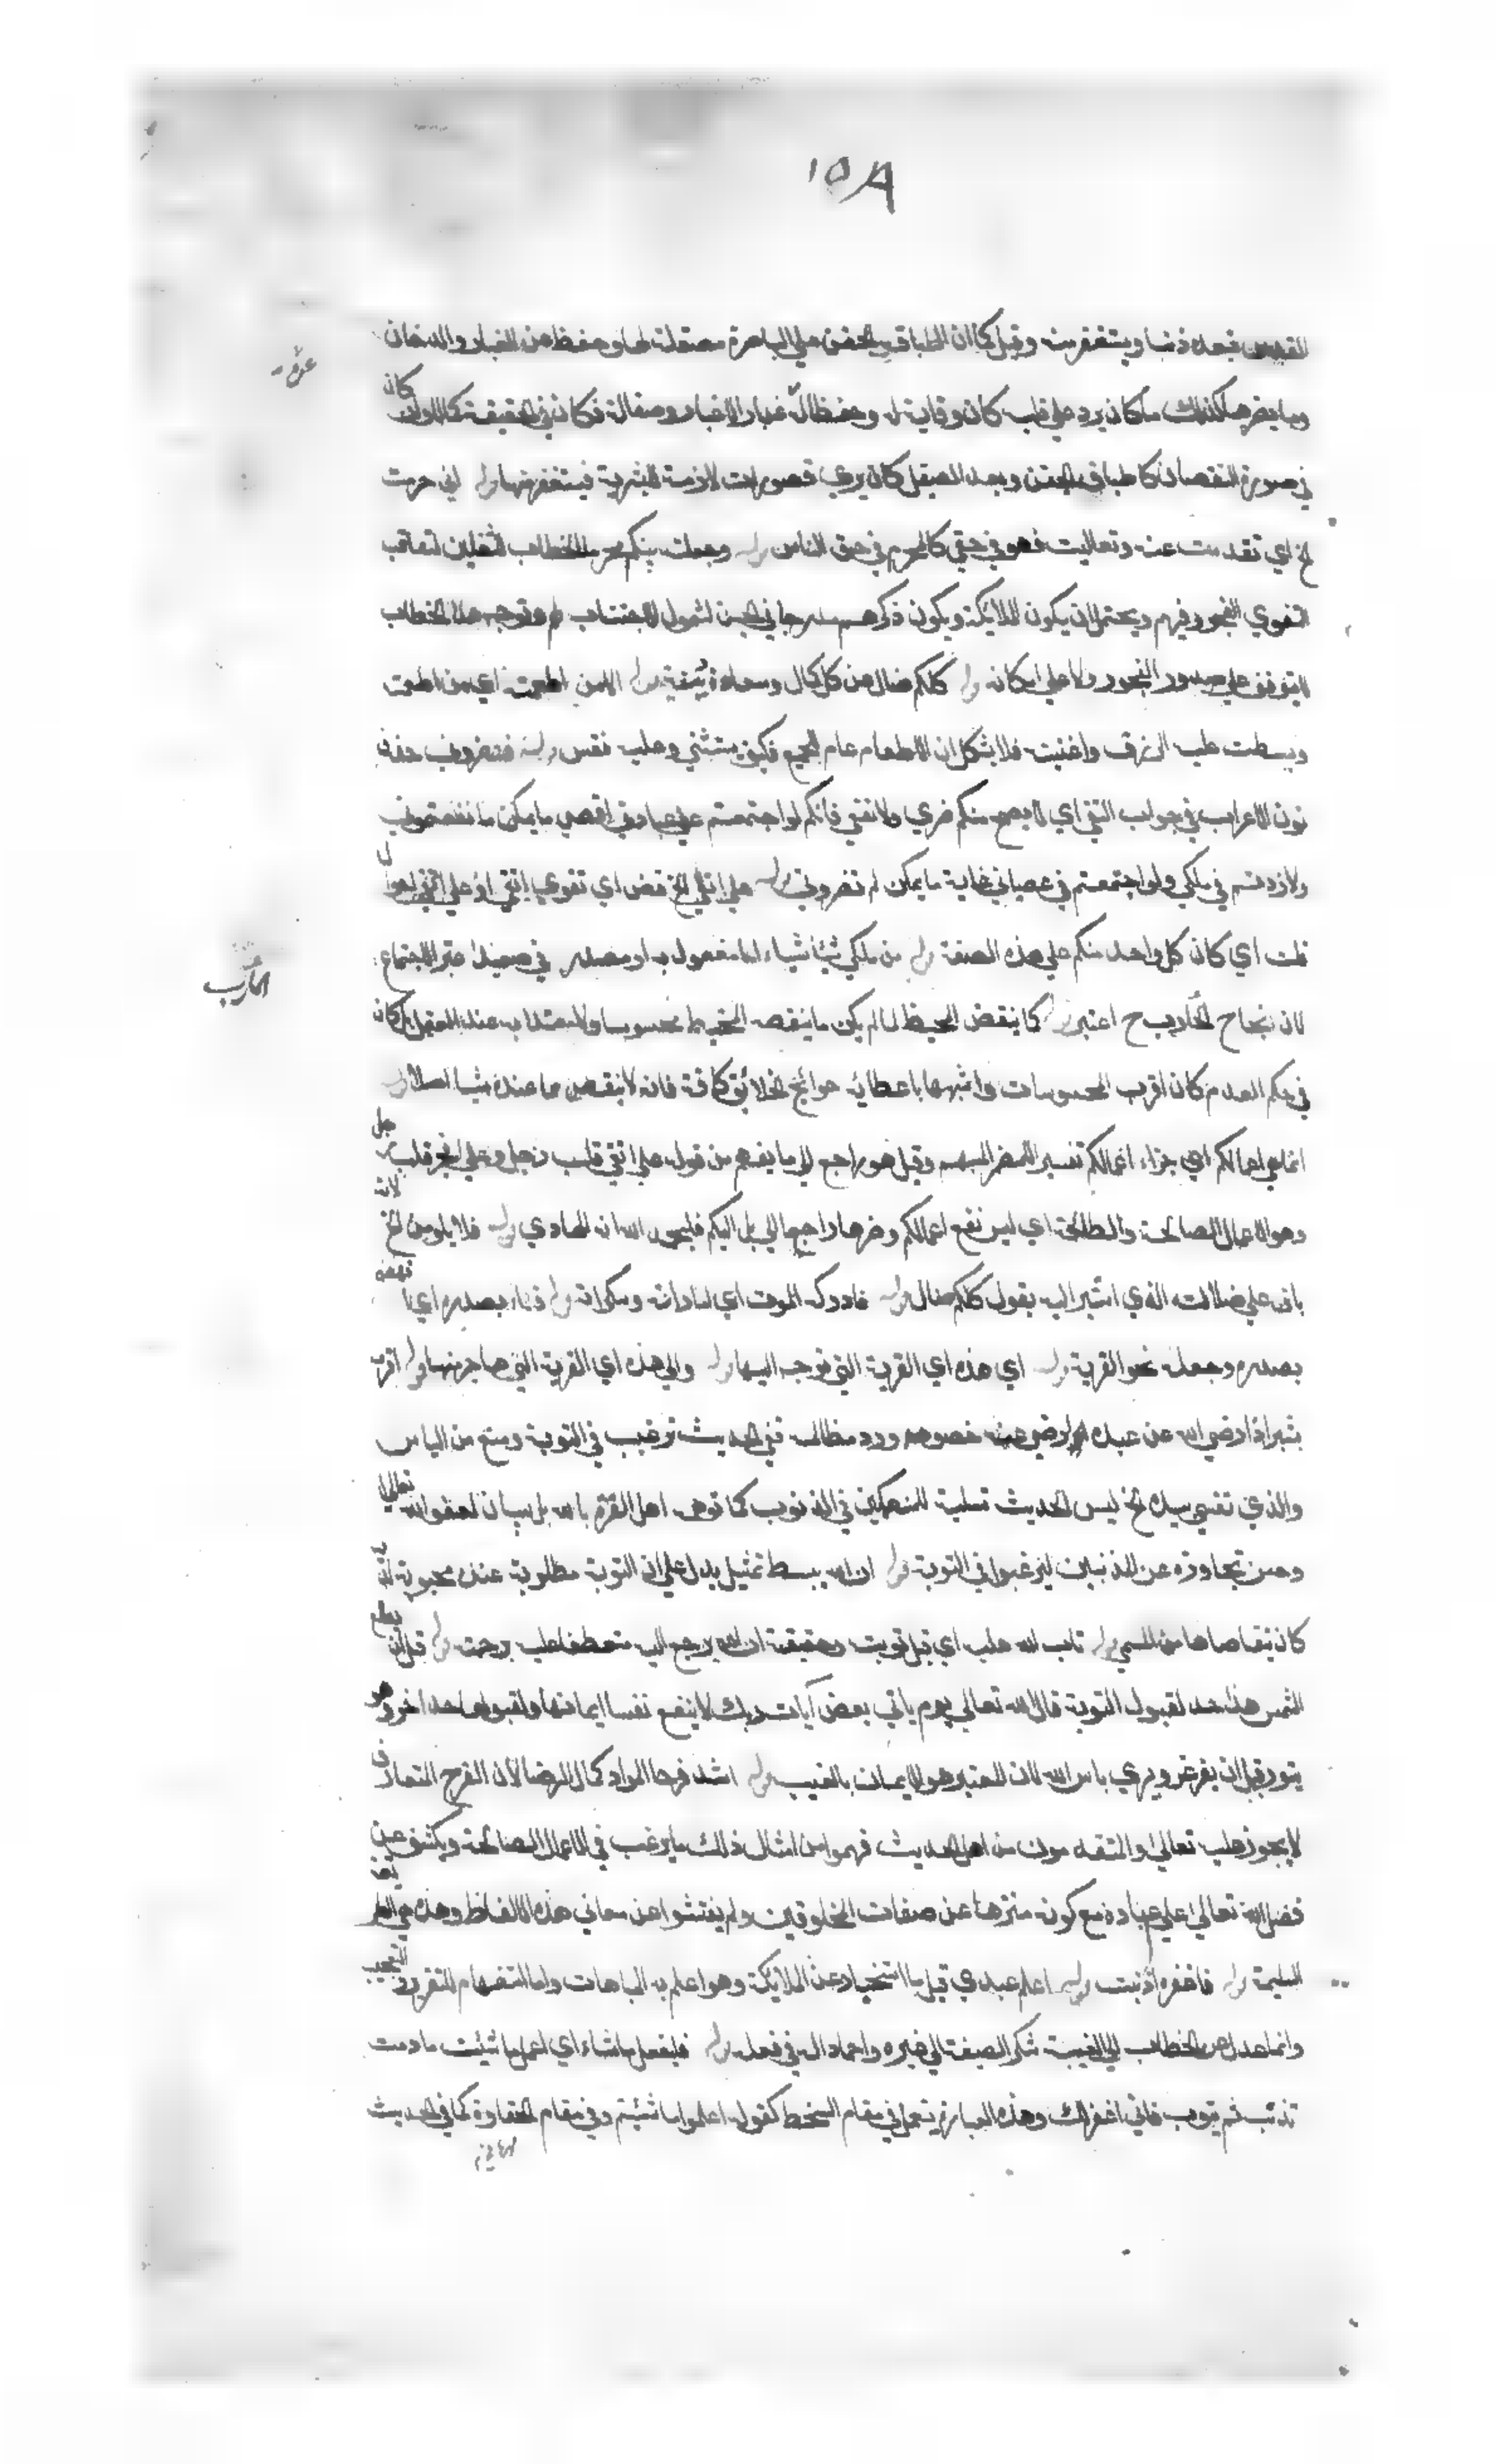 ١٥٨
القدس فيعده ذنبا ويستغفر منه وقيل كما ان اطباق الجفن علي الباصرة مصقلة لها وحفظ من الغبار والدخان
وما يضرها كذلك ما كان يرد علي قلبه كان وقاية له وحفظا له غبار الاغيار وصقالة فكان في الحقيقة كمالا وان كان
في صورة النقصان كاطباق الجفن وبعد الصيقل كان يري قصورات لازمة للبشرية فيستغفر منها قوله اني حرمت
الخ اي تقدست عنه وتعاليت فهو في حقي كالمحرم في حق الناس قوله وجعلته بينكم محرما الخطاب للثقلين لتعاقب
التقوي الفجور فيهم ويحتمل ان يكون للملائكة ويكون ذكرهم مدرجا في الجن لشمول الاجتنان لهم وتوجه هذا الخطاب
لا يتوقف علي صدور الفجور ولا علي امكانه قوله كلكم ضال عن كل كمال وسعادة دينية قوله الا من اطعمت اي من اطعمت
وبسطت عليه الرزق واغنيت فلا يشكل ان الاطعام عام للجميع فكيف يستثني وعليه فقس قوله فتضروني حذف
نون الاعراب في جواب النفي اي لا يصح منكم ضري ولا نفعي فانكم لو اجتمعتم علي عبادتي اقصي ما يمكن ما نفعتموني
ولا زدتم في ملكي ولو اجتمعتم في عصياني غاية ما يمكن لم تضروني قوله علي اتقي الخ فض اي تقوي اتقي او علي اتقي احوال
قلت اي كان كل واحد منكم علي هذه الصفة قوله من ملكي شيئا شياء اما مفعول به او مصدر في صعيد اعتبر الاجتماع
المآرب
لان نجاح المآرب ح اعتبر قوله كما ينقص المخيط لما لم يكن ما ينقصه المخيط محسوسا ولا معتدا به عند العقل بل كان
في حكم العدم كان اقرب المحسوسات واشبهها باعطائه حوائج الخلائق كافة فانه لا ينقص مما عنده شيئا اصلا قوله
انما هي اعمالكم اي جزاء اعمالكم تفسير للضمير المبهم وقيل هو راجع الي ما يفهم من قوله علي اتقي قلب رجل وعلي افجر قلب رجل
وهو الاعمال الصالحة والطالحة اي ليس نفع اعمالكم وضرها راجعا الي بل اليكم فليحمد الله انه الهادي قوله فلا يلومن الخ لانه
باق علي ضلالته الذي اشير اليه بقوله كلكم ضال قوله فادركه الموت اي اماراته وسكراته قوله فناء بصدره اي نهض
بصدره وجعله نحو القرية قوله اي هذه اي القرية التي توجه اليها قوله والي هذه اي القرية التي هاجر منها قوله اقرب
بشبر اذا رضي الله عن عبده ارضي عنه خصومه ورد مظالمه ففي الحديث ترغيب في التوبة ومنع من الياس
والذي نفسي بيده الخ ليس الحديث تسلية للمنهمكين في الذنوب كما توهمه اهل الغرة بالله بل بيان لعفو الله تعالي
وحسن تجاوزه عن المذنبين ليرغبوا في التوبة قوله ان الله يبسط تمثيل يدل علي ان التوبة مطلوبة عنده محبوبة كانه
كان يتقاضاها من المسي قوله تاب الله عليه اي قبل توبته وحقيقته ان الله يرجع اليه متعطفا عليه برحمته قوله قبل ان تطلع
الشمس هذا حد لقبول التوبة قال الله تعالي يوم ياتي بعض آيات ربك لا ينفع نفسا ايمانها ولقبولها حد اخر وهو
يتوب قبل ان يغرغر ويري باس الله لان المعتبر هو الايمان بالغيب قوله اشد فرحا المراد كمال الرضا لان الفرح المتعارف
لا يجوز عليه تعالي والمتقدمون من اهل الحديث فهموا من امثال ذلك ما يرغب في الاعمال الصالحة ويكشف عن
فضل الله تعالي علي عباده مع كونه منزها عن صفات المخلوقين ولم يفتشوا عن معاني هذه الالفاظ وهذه هي الطريقة
السليمة قوله فاغفره اذنبت قوله اعلم عبدي قيل ما استخبار عن الملائكة وهو اعلم به للباهات واما استفهام للتقرير والتعجيب
وانما عدل من الخطاب الي الغيبة شكر الصيغة الي غيره واحماداله في فعله قوله فليفعل ما شاء اي اعمل ما شئت ما دمت
تذنب ثم تتوب فاني اغفر لك وهذه العبارة يستعمل في مقام السخط كقوله اعملوا ما شئتم وفي مقام الحفاوة كما في الحديث